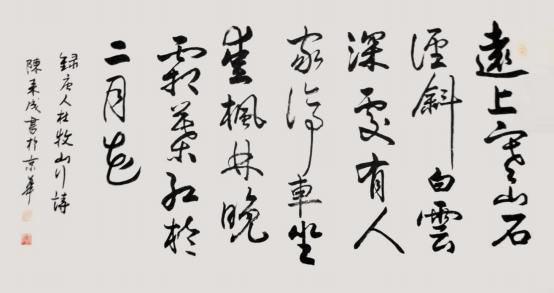 遠上寒山石
徑斜白雲
深處有人
家停車坐
愛楓林晚
霜葉紅於
二月花
錄唐人杜牧山行詩
陳来成書於京華